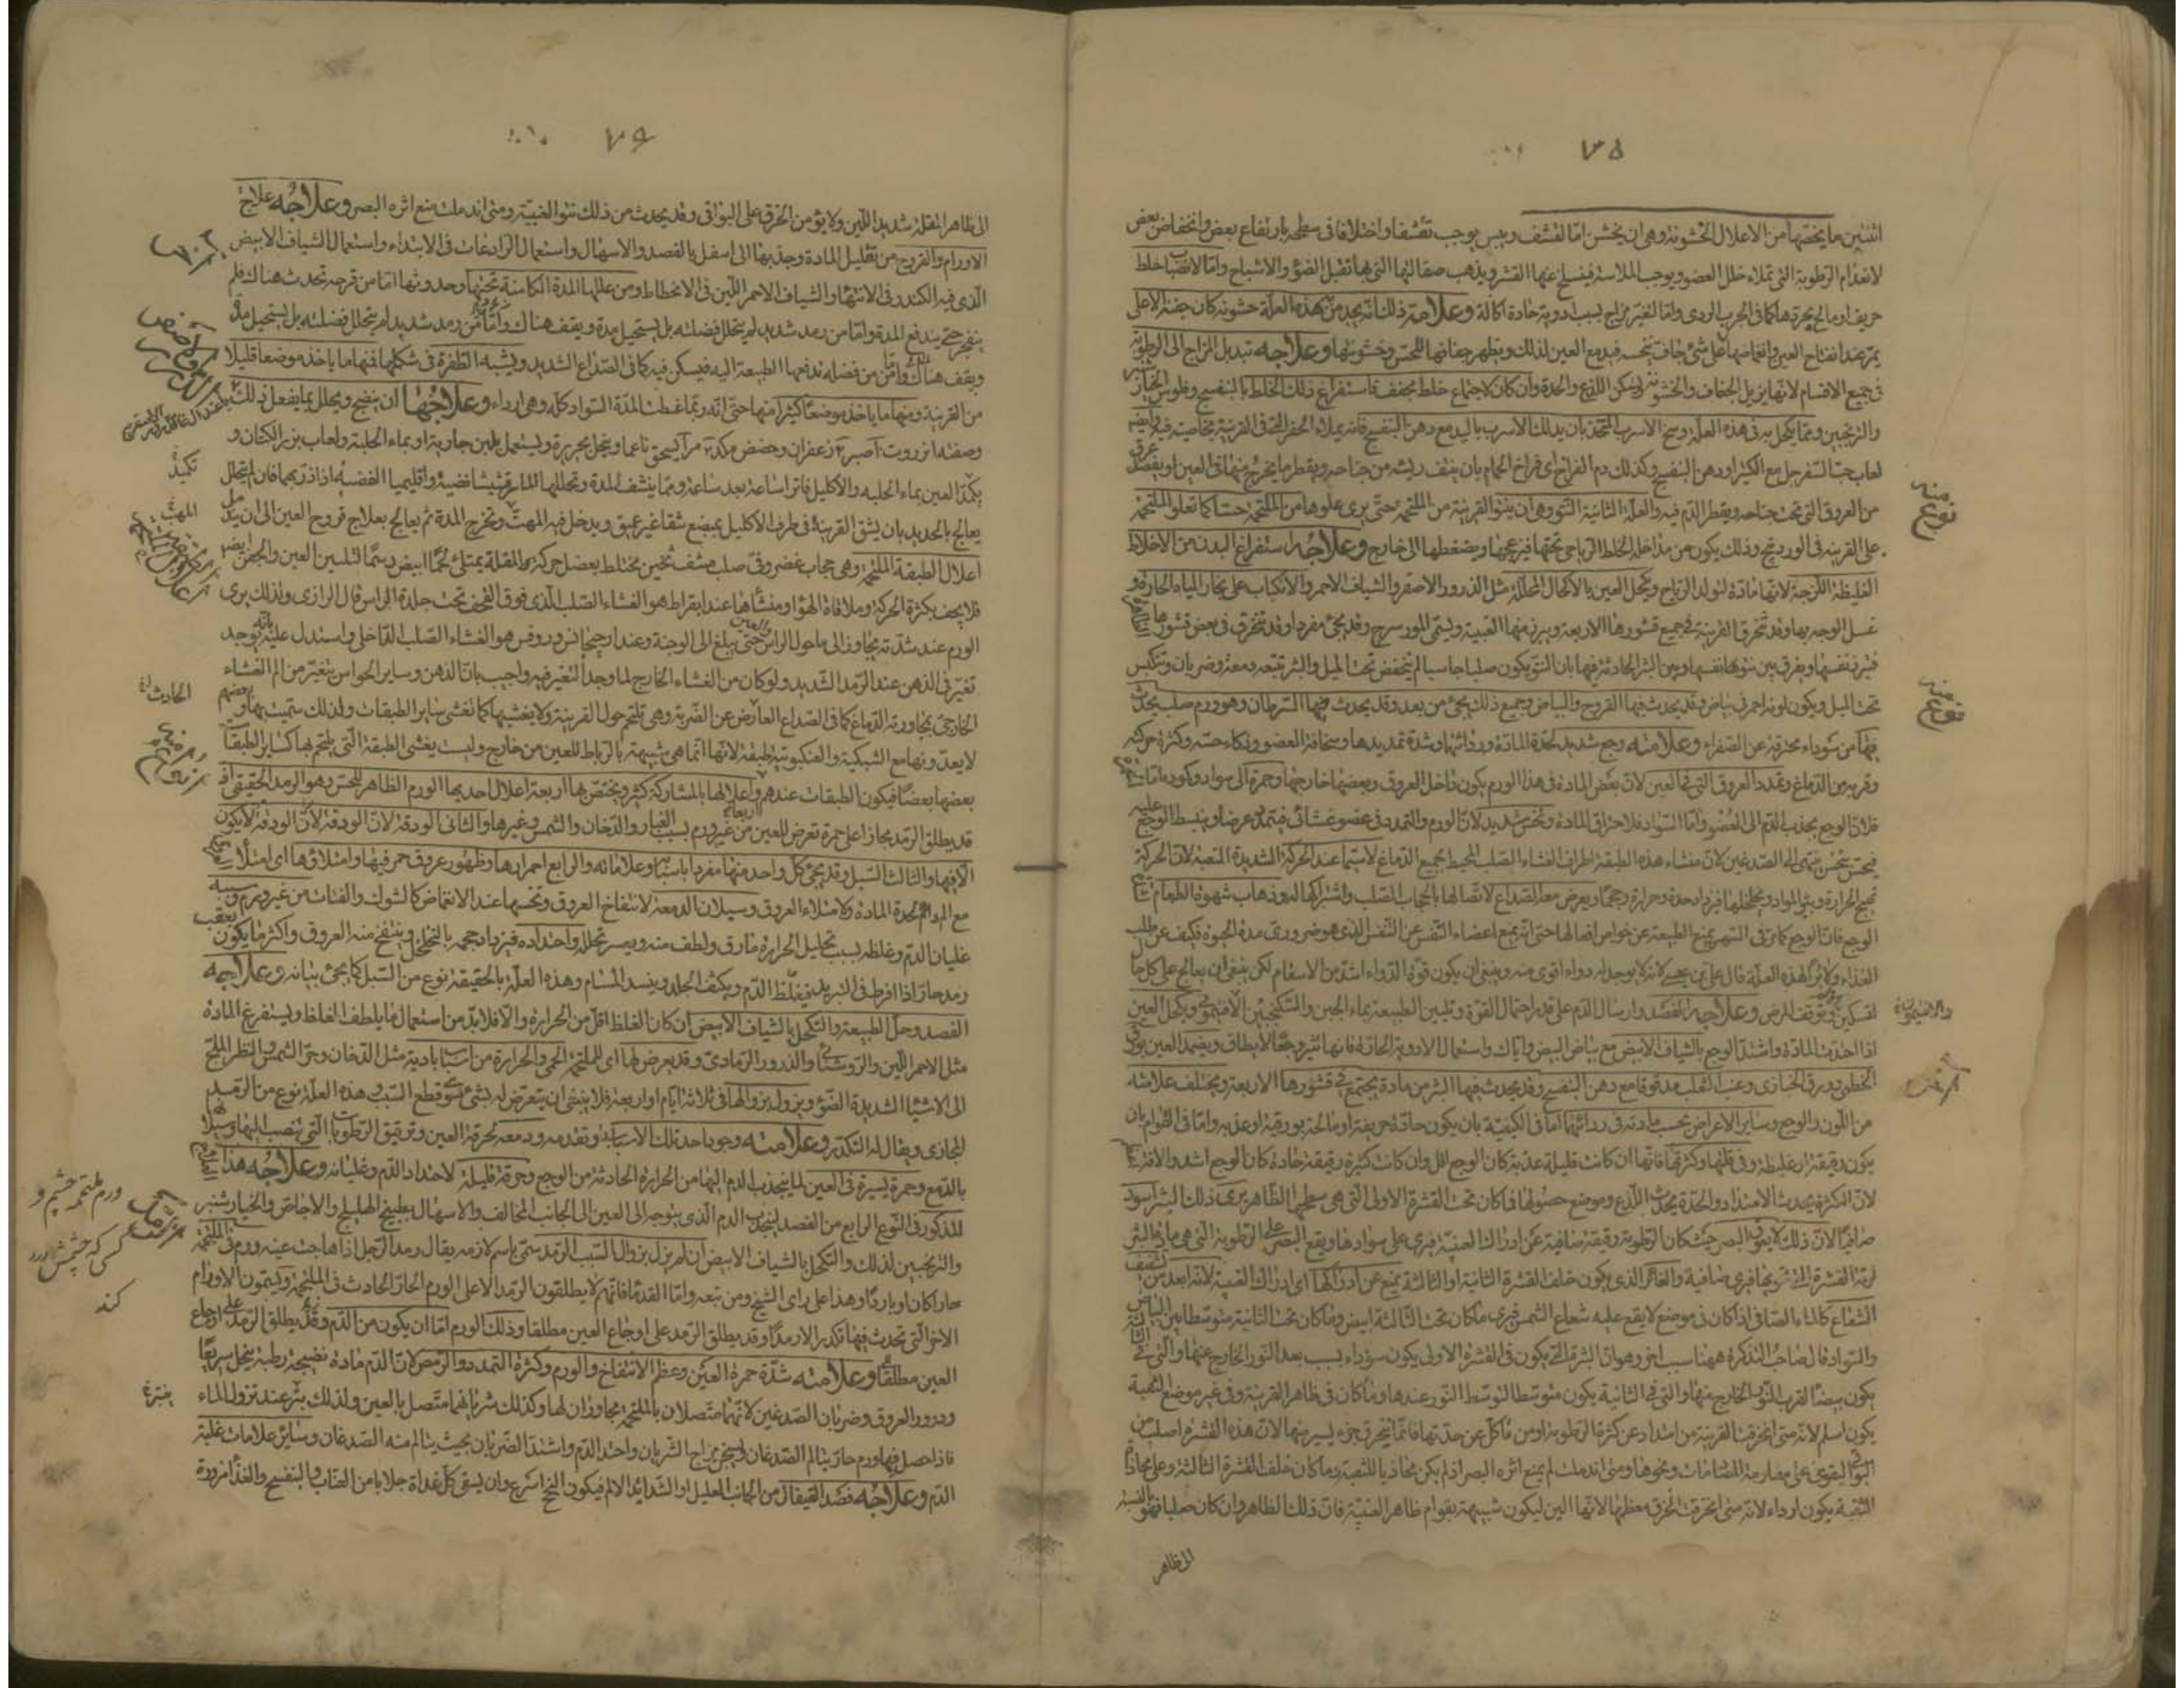 ٧٥
اثنتين ما يختصّها من الاعلال الخشونة وهى ان يخشن امّا لقشف ويبس يوجب تقشفا واختلافا فى سطحها بارتفاع بعض وانخفاض بعض
لانعدام الرطوبة التى تملاء خلل العضو ويوجب الملاسة فينسلخ عنها القشر ويذهب صقالتها التى بها تقبل الضوء والاشباح وامّا لانصباب خلط
حريف او مالح يحرقها كما فى الجرب الردى وامّا لتغير مزاج بسبب ادوية حادة اكالة وعلامة ذلك انه يجد من هذه العلة خشونة كان جفنه الاعلى
يمرّ عند انفتاح العين وانغماضها على شئ جاف ينخسه فيدمع العين لذلك ويظهر جفافها للحس وخشونتها وعلاجه تبديل المزاج الى الرطوبة
فى جميع الاقسام لانها يزيل الجفاف والخشونة ويسكن اللذع والحدة وان كان لاجتماع خلط مجفف فاستفراغ ذلك الخلط بالبنفسج وفلوس الخيارشنبر
والترنجبين وممّا يكحل به فى هذه العلة وسخ الاسرب المتخذ بان يدلك الاسرب باليد مع دهن البنفسج فانه يملاء الحفر التى فى القرنية بخاصية فيه وايضا
لعاب حب السفرجل مع الكثيرا ودهن البنفسج وكذلك دم الفراخ اى فراخ الحمام بان ينتف ريشه من جناحه ويقطر ما يخرج منها فى العين او يفصد عرق
من العروق التى تحت جناحه ويقطر الدم فيه والعلة الثانية النتو وهى ان ينتو القرنية من الملتحمة حتى يرى علوها من الملتحمة حسا كما تعلو الملتحمة
على القرنية فى الوردينج وذلك يكون من مداخلة الخلط الرياحى تحتها فيزعجها ويضغطها الى خارج وعلاجه استفراغ البدن من الاخلاط
الغليظة اللزجة لانها مادة لتولد الرياح ويكحل العين بالاكحال المحللة مثل الذرور الاصفر والشياف الاحمر والانكباب على بخار المياه الحارة و
غسل الوجه بها وقد تخرق القرنية فى جميع قشورها الاربعة ويبرز منها العنبية ويسمّى المورسرج وقد يجئ مفردا وقد تنخرق فى بعض قشورها
نوع منه
فتبرز نفسها ويفرق بين نتوها نفسها وبين البثر الحادثة فيها بان النتو يكون صلبا جاسيا لم ينخفض تحت الميل والبثر تتبعه دمعة وضربان وتنكبس
تحت الميل ويكون لونه احمر فى بياض وقد يحدث فيها القروح والبياض وجميع ذلك يجئ من بعد وقد يحدث فيها السرطان وهو ورم صلب يحدث
فيها من سوداء محترقة عن الصفراء وعلامته وجع شديد لحدة المادة وردائتها وشدة تمديدها وسخافة العضو وذكاء حسه وكثرة حركته
وقربه من الدماغ وتمدد العروق التى فى العين لان بعض المادة فى هذا الورم يكون داخل العروق وبعضها خارجها وحمرة الى سواد وكمودة امّا الحمرة
نوع منه
فلان الوجع يجذب الدم الى العضو وامّا السواد فلاحتراق المادة ونخس شديد لان الورم والتمدد فى عضو غشائى فيتمدد عرضا وينبسط الوجع عليه
فيحس بنخس ينتهى الى الصدغين لان منشاء هذه الطبقة اطراف الغشاء الصلب المحيط بجميع الدماغ لا سيّما عند الحركة الشديدة المتعبة لان الحركة
تهيج الحرارة ويثور المواد ويخلخلها فيزداد حدة وحرارة وحجما ويعرض معه الصداع لاتصالها بالحجاب الصلب واشتراكها له وذهاب شهوة الطعام
الوجع فان الوجع كما فى الشهر يمنع الطبيعة عن خواص افعالها حتى انه يمنع اعضاء التنفس عن التنفس الذى هو ضرورى مدة الحيوة فكيف عن طلب
الغذاء ولا برء لهذه العلة قال على بن عيسى لانه لا يوجد له دواء اقوى منه وينبغى ان يكون قوة الدواء اشد من الاسقام لكن ينبغى ان يعالج على كل حال
لتسكين ويوقف المرض وعلاجه الفصد وارسال الدم على قدر احتمال القوة وتليين الطبيعة بماء الجبن والسكنجبين الافتيمونى ويكحل العين
والافتيمون
اذا احتدت المادة واشتد الوجع بالشياف الابيض مع بياض البيض واياك واستعمال الادوية الحادة فانها تثير وجعا لا يطاق ويضمد العين بورق
الخطمى وورق الخبازى وعنب الثعلب مدقوقا مع دهن البنفسج وقد يحدث فيها البثر من مادة يجتمع فى قشورها الاربعة ويختلف علاماته
من اللون والوجع وساير الاعراض بحسب مادته فى ردائتها امّا فى الكيفية بان يكون حادة حريفة او مالحة بورقية او عذبة وامّا فى القوام بان
يكون رقيقة او غليظة وفى قلتها وكثرتها فانها ان كانت قليلة عذبة كان الوجع اقل وان كانت كثيرة رقيقة حادة كان الوجع اشد والافة
لان الكثرة يحدث الامتداد والحدة يحدث اللذع وموضع حصولها فما كان تحت القشرة الاولى التى هى سطحها الظاهر يرى ذلك البثر اسود
صافيا لان ذلك لا يعوق البصر حيث كان الرطوبة رقيقة صافية عن ادراك العنبية فيرى على سوادها ويقع البصر على الرطوبة التى هى ماء البثر
لرقة القشرة التى تحويها فيرى صافية والغائر الذى يكون خلف القشرة الثانية او الثالثة يمنع عن ادراكها اى ادراك العنبية لانه ابعد من تشفف
الشعاع كالماء الصافى اذا كان فى موضع لا يقع عليه شعاع الشمس فيرى ما كان تحت الثالثة ابيض وما كان تحت الثانية متوسطا بين البياض
والسواد قال صاحب التذكرة ههنا سبب اخر وهو ان البثرة التى يكون فى القشرة الاولى يكون سوداء بسبب بعد النور الخارج عنها والتى فى الثالثة
يكون بيضاء لقرب النور الخارج منها والتى فى الثانية يكون متوسطا لتوسط النور عندها وما كان فى ظاهر القرنية وفى غير موضع الثقبة
يكون اسلم لانه متى انخرقت القرنية من امتداد عن كثرة الرطوبة او من تاكل عن حدتها فانما ينخرق جزء يسير منها لان هذه القشرة اصلب من
البواقى ليقوى على مقاومة المصادمات ونحوها ومتى اندملت لم يمنع اثره البصر اذ لم يكن محاذيا للثقبة وما كان خلف القشرة الثالثة وعلى محاذاة
الثقبة يكون اردء لانه متى انخرقت انخرق معظمها لانها الين ليكون شبيهة بقوام ظاهر العنبية فان ذلك الظاهر وان كان صلبا فهو بالنسبة
الى ظاهر
٧٦
الى ظاهر المقلة شديد اللين ولا يؤمن الخرق على البواقى وقد يحدث من ذلك نتوء العنبية ومتى اندملت منع اثره البصر وعلاجه علاج
الاورام والقروح من تقليل المادة وجذبها الى اسفل بالفصد والاسهال واستعمال الرادعات فى الابتداء واستعمال الشياف الابيض
الذى فيه الكندر فى الانتهاء والشياف الاحمر اللين فى الانحطاط ومن عللها المدة الكامنة تحتها وحدوثها امّا من قرحة تحدث هناك فلم
ينفجر حتى يندفع المدة وامّا من رمد شديد لم يتحلل فضلته بل يستحيل مدة ويقف هناك
ويقف هناك وامّا من فضلة تدفعها الطبيعة اليه فيسكن فيه كما فى الصداع الشديد ويشبه الظفرة فى شكلها فمنها ما ياخذ موضعا قليلا
من القرنية ومنها ما ياخذ موضعا كثيرا منها حتى انه ربما غطت المدة السواد كله وهى اردء وعلاجها ان ينضج ويحلل بما يفعل ذلك
وصفته انزروت صبر زعفران وحضض مر يسحق ناعما وينخل بحريرة ويستعمل بلبن جارية او بماء الحلبة ولعاب بزر الكتان و
تكميد
يكمد العين بماء الحلبة والاكليل فاترا ساعة بعد ساعة وممّا ينشف المدة وتحللها المارقشيشا فضية واقليميا الفضية اذا ذر بهما فان لم يتحلل
المهت
يعالج بالحديد بان يشق القرنية فى طرف الاكليل بمبضع شقا غير عميق ويدخل فيه المهت وتخرج المدة ثم يعالج بعلاج قروح العين الى ان يندمل
اعلال الطبقة الملتحمة وهى حجاب غضروفى صلب مشف ثخين مختلط بعضل حركة المقلة يمتلئ لحما ابيض دسما لتليين العين والجفن
فلا يجف بكثرة الحركة وملاقاة الهواء ومنشأها عند ابقراط هو الغشاء الصلب الذى فوق القحف تحت جلدة الراس قال الرازى ولذلك يرى
الورم عند شدته يجاوز الى ما حول الراس والعين حتى يبلغ الى الوجنة وعند ارجيجانس وروفس هو الغشاء الصلب الداخلى واستدل عليه بانه يوجد
تغير فى الذهن عند الرمد الشديد ولو كان من الغشاء الخارج لما وجد التغير فيه واجيب بان الذهن وساير الحواس يتغير من الم الغشاء
الحادث
الخارجى بمجاورته الدماغ كما فى الصداع العارض عن الضربة وهى تلتحم حول القرنية ولا يغشيها كما تغشى ساير الطبقات ولذلك سميت بها وبعضهم
لا يعدونها مع الشبكية والعنكبوتية طبقة لانها انما هى شبيهة بالرباط للعين من خارج وليست يغشى الطبقة التى يلتحم بها كساير الطبقات
بعضها بعضا فيكون الطبقات عندهم اربعا واعلالها بالمشاركة كثيرة ويختص بها اربعة اعلال احديها الورم الظاهر للحس وهو الرمد الحقيقى اذ
قد يطلق الرمد مجازا على حمرة تعرض للعين من غير ورم بسبب الغبار والدخان والشمس وغيرها والثانى الودقة لان الودقة لا يكون
الا فيها والثالث السبل وقد يجئ كل واحد منها مفردا باسبابه وعلاماته والرابع احمرارها وظهور عروق حمر فيها وامتلاؤها اى امتلاء
مع الم لحدة المادة ولامتلاء العروق وسيلان الدمعة لانتفاخ العروق ونخسها عند الانغماض كالشوك والفتات من غير ورم وسببه
غليان الدم وغلظه بسبب تحليل الحرارة ما رق ولطف منه ويعسر تحلله واحتداده فيزداد حجمه بالتخلخل وينتفخ منه العروق واكثر ما يكون يعقب
رمد حار اذا افرط فى التبريد فيغلظ الدم ويكثف الجلد وينسد المسام وهذه العلة بالحقيقة نوع من السبل كما يجئ بيانه وعلاجه
الفصد وحل الطبيعة والتكحل بالشياف الابيض ان كان الغلظ اقل من الحرارة والا فلا بد من استعمال ما يلطف الغلظ ويستفرغ المادة
مثل الاحمر اللين والروشنائى والذرور الرمادى وقد يعرض لها اى للملتحمة الحمى والحرارة من اسباب بادية مثل الدخان وحر الشمس والنظر الملح
الى الاشياء الشديدة الضوء ويزول بزوالها فى ثلاثة ايام او اربعة فلا ينبغى ان يتعرض له بشئ سوى قطع السبب وهذه العلة نوع من الرمد
المجازى ويقال له التكدر وعلامته وجود احد تلك الاسباب وتقدمه ودمعة لحرقة العين وترقيق الرطوبات التى تنصب اليها وسيلانها
بالدمع وحمرة يسيرة فى العين لما ينجذب الدم اليها من الحرارة الحادثة من الوجع وحرقة قليلة لاحتداد الدم وغليانه وعلاجه هذا
المذكور فى النوع الرابع من الفصد لينجذب الدم الذى يتوجه الى العين الى الجانب المخالف والاسهال بطبيخ الهليلج والاجاص والخيارشنبر
ورم ملتحمه چشم و
كسى كه چشمش درد
كند
والترنجبين لذلك والتكحل بالشياف الابيض ان لم يزل بزوال السبب الرمد سمى باسم لازمه يقال رمد الرجل اذا هاجت عينه ورم فى الملتحمة
حارا كان او باردا وهذا على راى الشيخ ومن تبعه وامّا القدماء فانهم لا يطلقون الرمد الا على الورم الحار الحادث فى الملتحمة ويسمون الاورام
الاخر التى تحدث فيها تكدرا لا رمدا وقد يطلق الرمد على اوجاع العين مطلقا وذلك الورم امّا ان يكون من الدم وقد يطلق الرمد على اوجاع
العين مطلقا وعلامته شدة حمرة العين وعظم الانتفاخ والورم وكثرة التمدد والرمص لان الدم مادة نضيجة رطبة يتحلل سريعا
ودرور العروق وضربان الصدغين لانهما متصلان بالملتحمة مجاوران لها وكذلك شريانهما متصل بالعين ولذلك يبتر عند نزول الماء
فاذا حصل فيها ورم حار يتالم الصدغان لتسخن مزاج الشريان واحتد الدم واشتد الضربان بحيث يتالم منه الصدغان وساير علامات غلبة
الدم وعلاجه فصد القيفال من الجانب العليل او الشديد الالم فيكون النجح اسرع وان يسقى كل غداة جلابا من العناب والبنفسج والغذاء مزورة